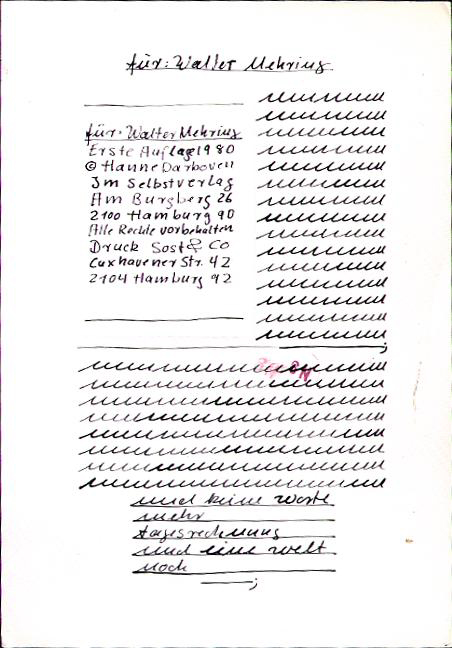 für: Walter Mehring
für: Walter Mehring
Erste Auflage 1980
© Hanne Darboven
Im Selbstverlag
Am Burgberg 26
2100 Hamburg 90
Alle Rechte vorbehalten
Druck Sost & Co
Cuxhavener Str. 42
2104 Hamburg 92
und keine worte
mehr
tagesrechnung
und eine welt
noch
;